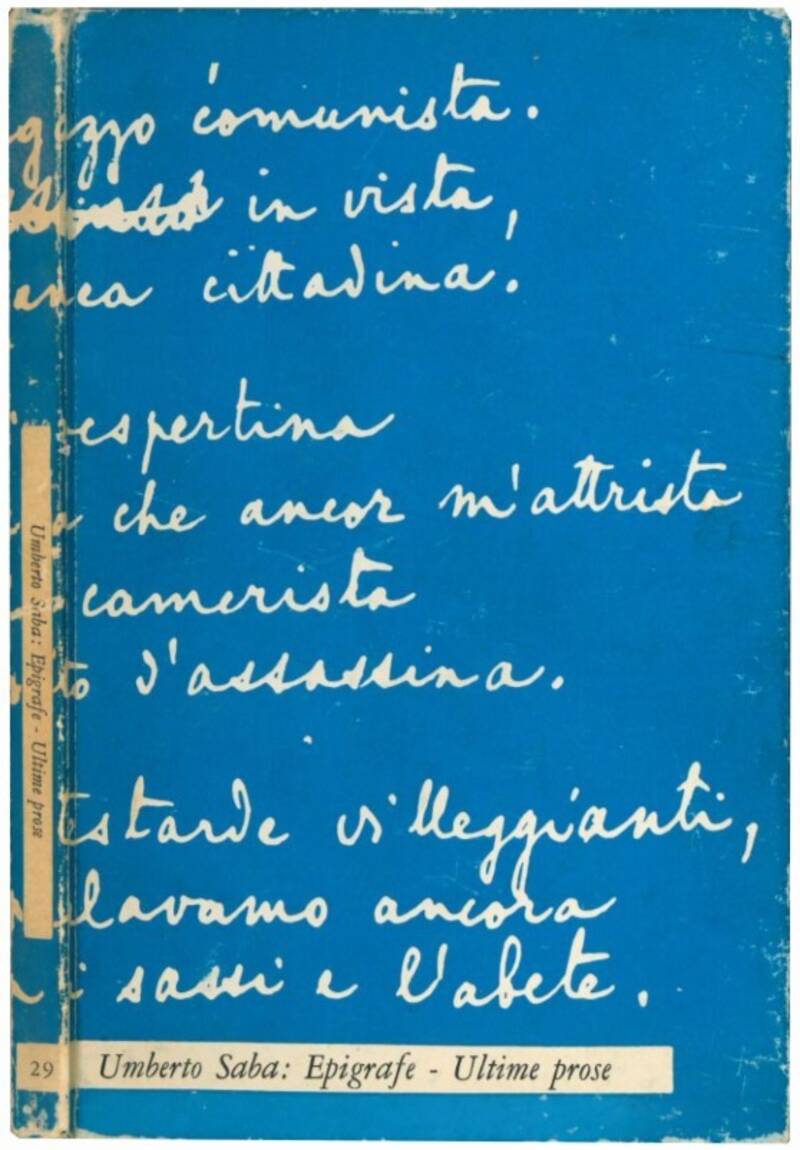 comunista.
in vista,
cittadina.
vespertina
che ancor m'attrista
camerista
d'assassina.
tarde villeggianti,
lavamo ancora
i sassi e l'abete.
Umberto Saba: Epigrafe - Ultime prose
29 Umberto Saba: Epigrafe - Ultime prose